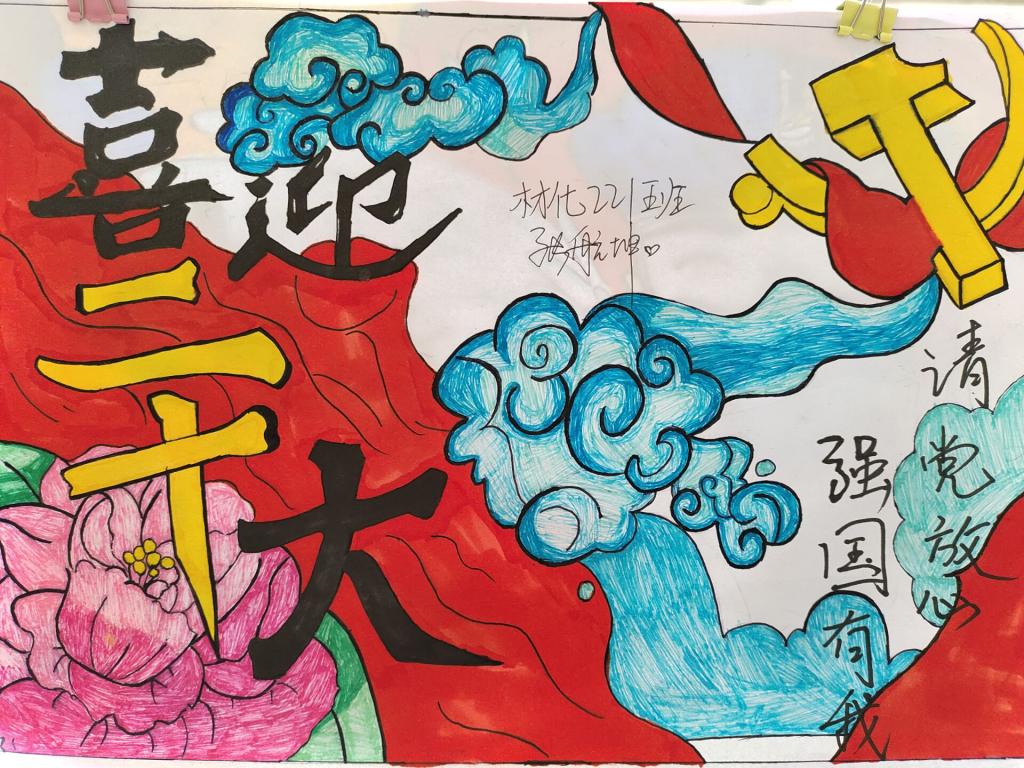 喜迎
二十大
材化221班
张航坤
请党放心
强国有我